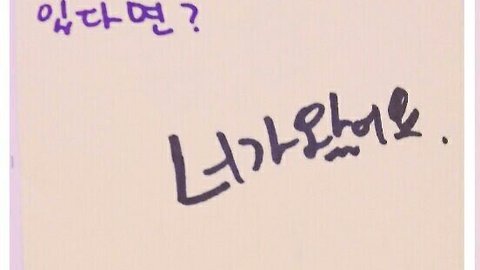 있다면?
너가왔어요.